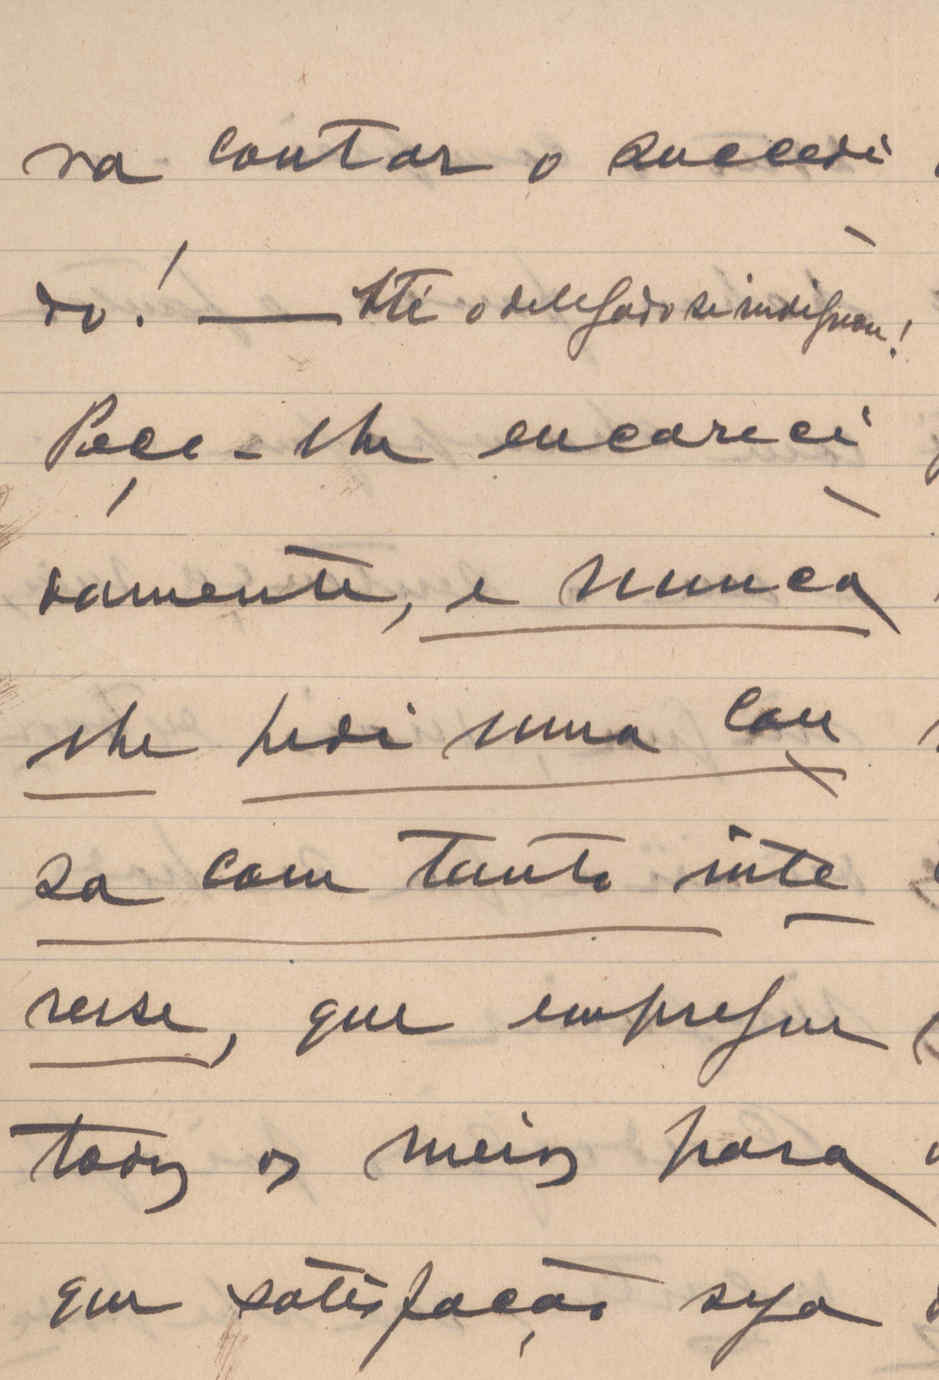 ra contar o succedi
do! — Até o delegado se indignou!
Peço-lhe encareci
damente, e nunca
lhe pedi uma cou
sa com tanto inte
resse, que empregue
todos os meios para
que satisfação seja